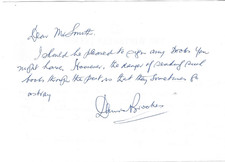 Dear Mr Smith,
I should be pleased to sign any books you
might have. However, the danger of sending such
books through the post, is that they sometimes go
astray